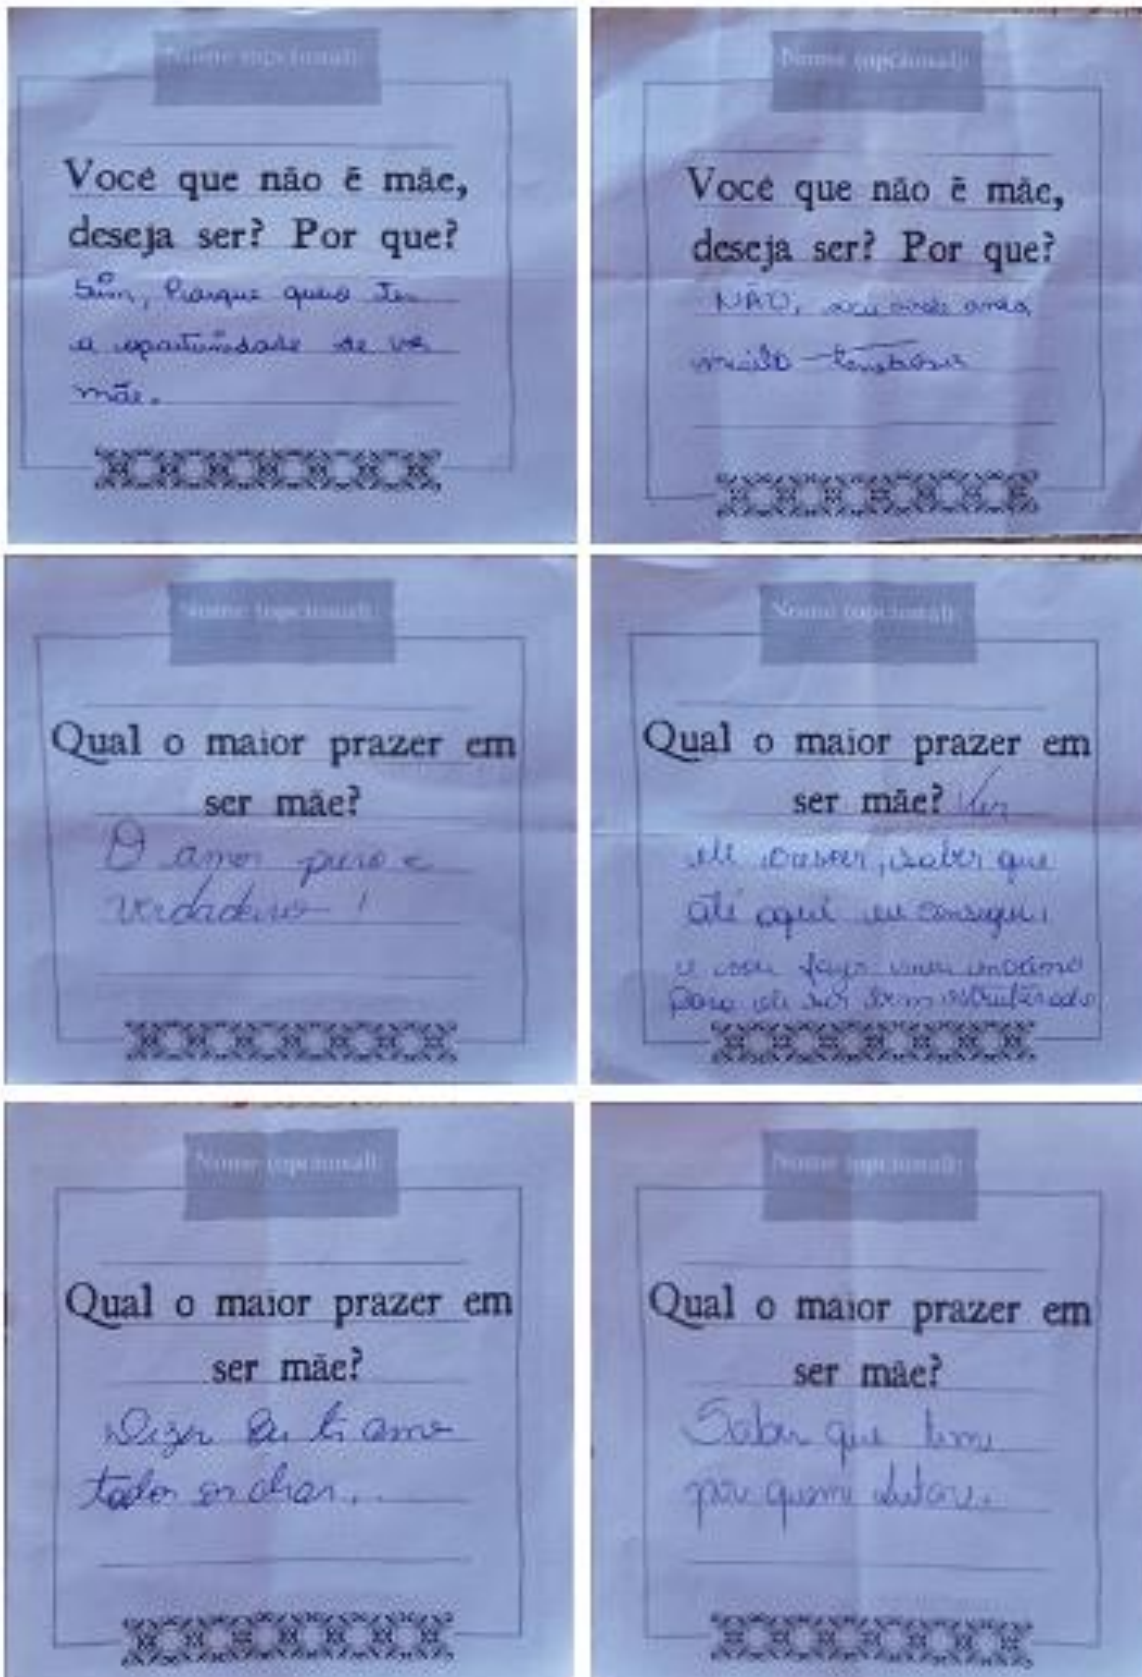 Nome (opcional):
Você que não é mãe,
deseja ser? Por que?
Sim, Porque quero ter
a oportunidade de ser
mãe.
Nome (opcional):
Você que não é mãe,
deseja ser? Por que?
NÃO,
muito
Nome (opcional):
Qual o maior prazer em
ser mãe?
O amor puro e
verdadeiro!
Nome (opcional):
Qual o maior prazer em
ser mãe? Ver
ele crescer, saber que
até aqui eu consegui
e que faço meu máximo
para ele ser bem estruturado
Nome (opcional):
Qual o maior prazer em
ser mãe?
Dizer Eu te amo
todos os dias..
Nome (opcional):
Qual o maior prazer em
ser mãe?
Saber que tem
por quem lutar.